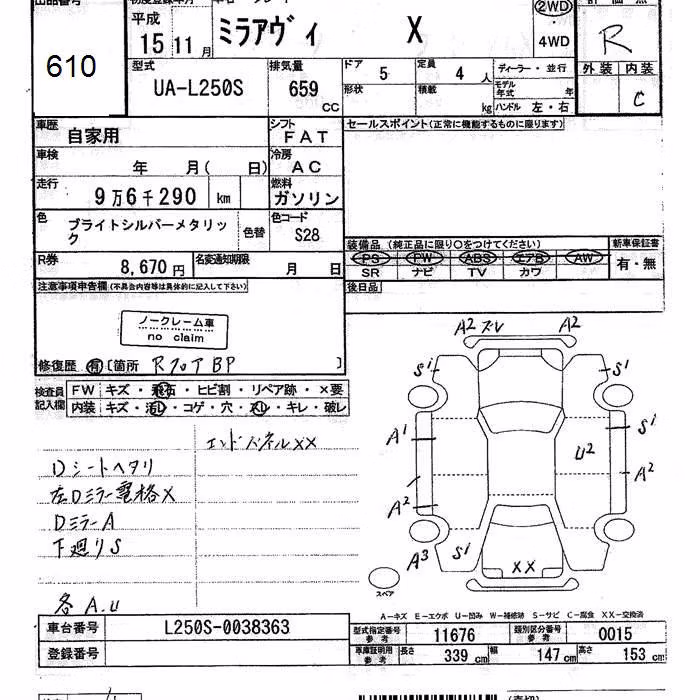 出品番号
610
初度登録年月
平成
15年11月
ミラアヴィ
X
2WD
4WD
評価点
R
型式
UA-L250S
排気量
659
CC
ドア
5
定員
4人
形状
積載
kg
ディーラー・並行
モデル
年式 年
ハンドル 左・右
外装
内装
C
車歴
自家用
シフト
FAT
セールスポイント(正常に機能するものに限ります)
車検
年 月( 日)
冷房
AC
走行
9万6千290 km
燃料
ガソリン
色
ブライトシルバーメタリック
色替
色コード
S28
装備品(純正品に限り○をつけてください)
PS PW ABS エアB AW
SR ナビ TV カワ
新車保証書
有・無
R券
8,670円
名変通知期限
月 日
後日品
注意事項申告欄(不具合内容等は具体的に記入して下さい)
ノークレーム車
no claim
修復歴 有 [箇所 RフロアBP ]
検査員
記入欄
FW キズ・飛石・ヒビ割・リペア跡・×要
内装 キズ・汚レ・コゲ・穴・スレ・キレ・破レ
エンドパネルXX
Dシートヘタリ
左Dミラー電格X
DミラーA
下廻りS
各A.U
A2 ズレ A2
S1 S1
A1 S1
U2
A2 A2
A3 S1
XX
スペア
A-キズ E-エクボ U-凹み W-補修跡 S-サビ C-腐食 XX-交換済
車台番号
L250S-0038363
登録番号
型式指定番号
参考
11676
類別区分番号
参考
0015
車庫証明用
参考
長さ 339 cm 幅 147 cm 高さ 153 cm